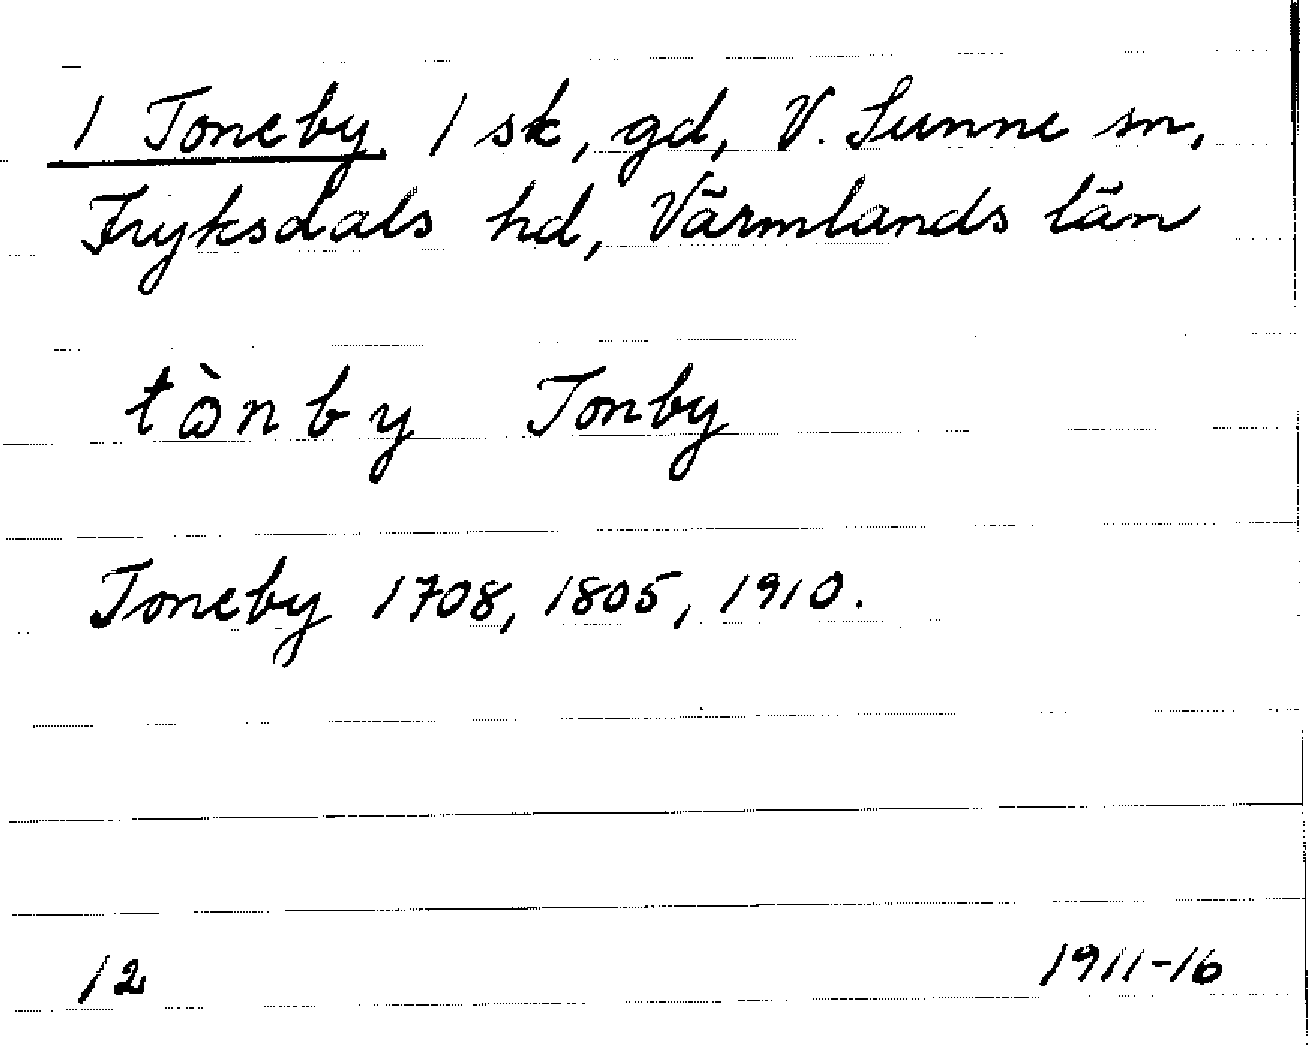 1 Toneby 1 sk, gd, V. Sunne sn,
Fryksdals hd, Värmlands län
tὼnby Tonby
Toneby 1708, 1805, 1910.
12 1911-16